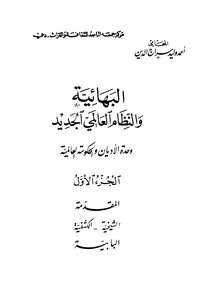 مركز جمعة الماجد للثقافة والتراث - دبي
المحامي
أحمد وليد سراج الدين
البهائية
والنظام العالمي الجديد
وحدة الأديان والحكومة العالمية
الجزء الأول
المقدمة
الشيخية - الكشفية
البابية